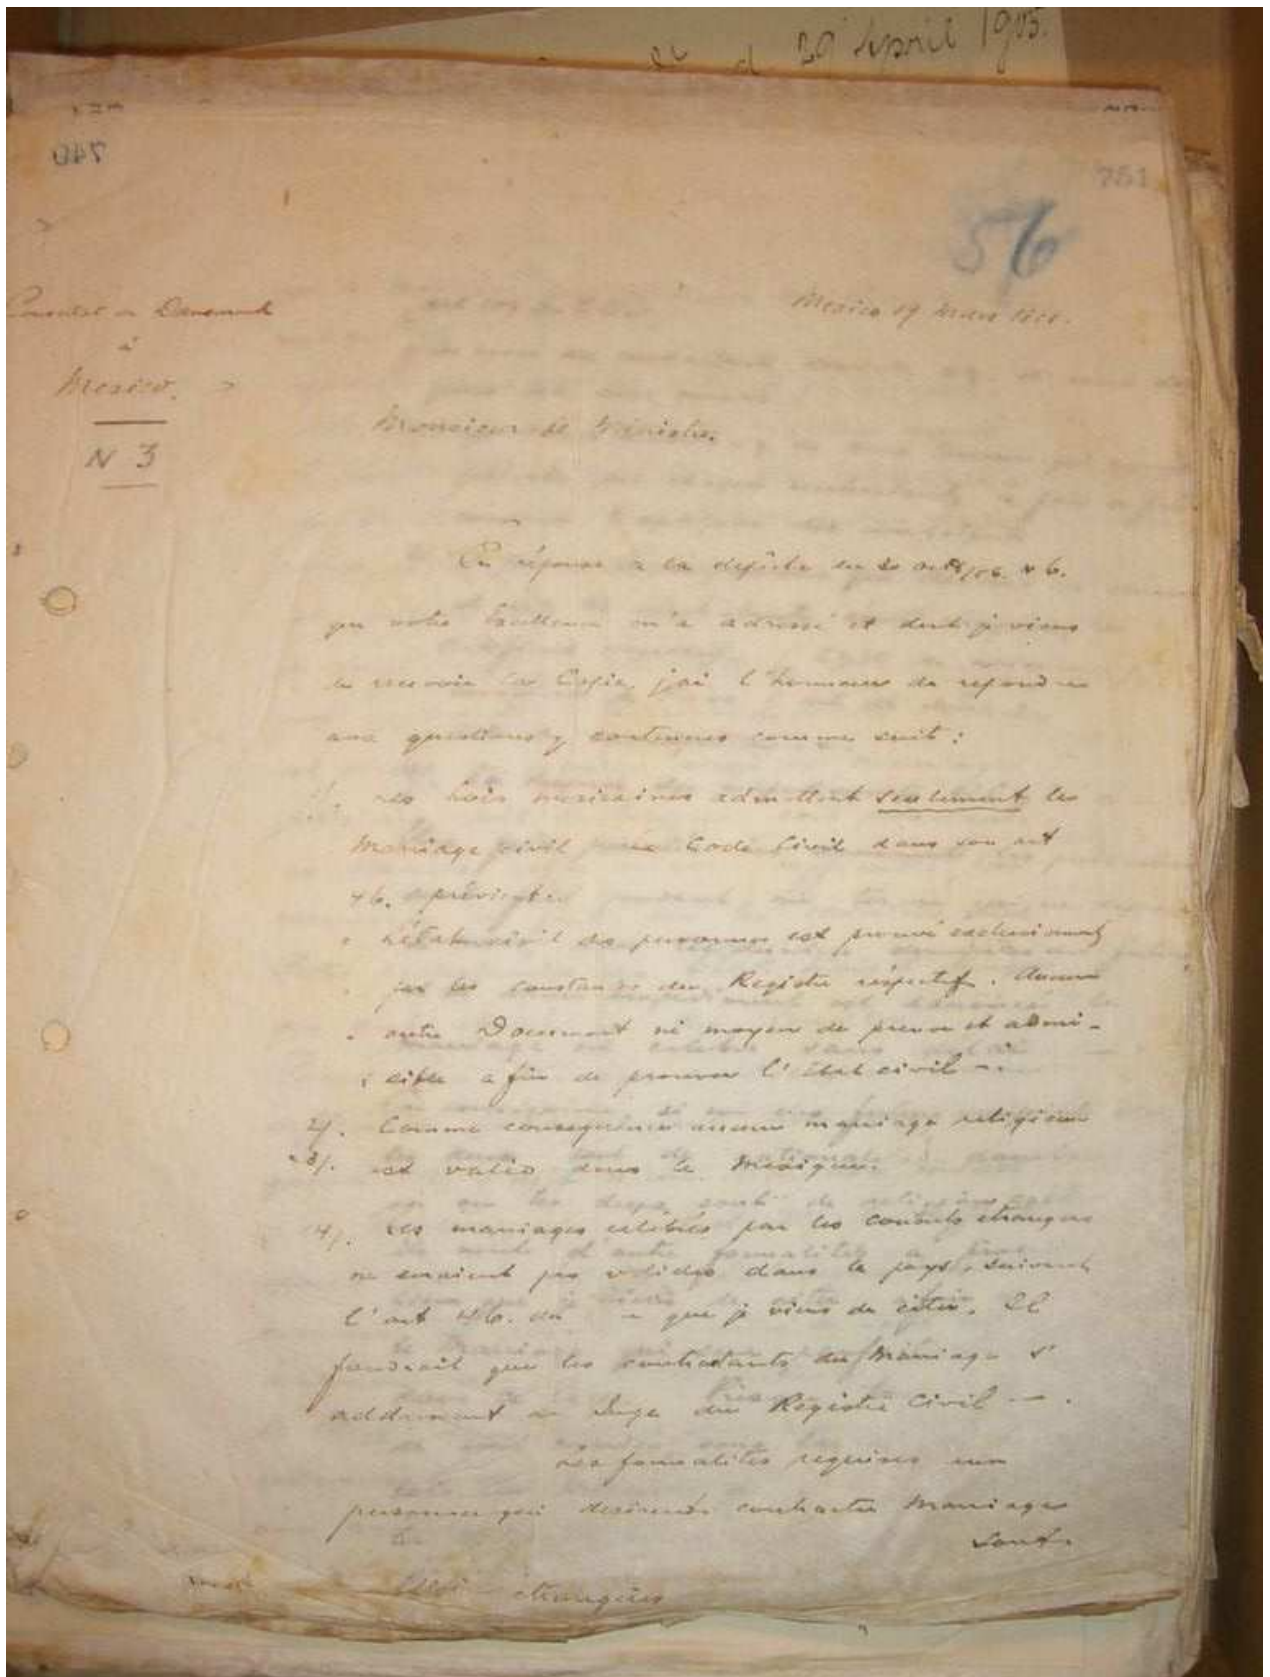 29 April 1905.
740
751
56
Consulat de Danemark
à
Mexico.
N 3
Mexico 19 Mars
Monsieur le Ministre.
En réponse a la depêche du 20 N 6.
que votre Excellence m'a adressé et dont je viens
de recevoir la Copie, j'ai l'honneur de repondre
aux questions y contenues comme suit:
1/. Les Lois mexicaines admettent seulement le
Mariage civil Code Civil dans son art
46. prévient
L'état civil des personnes est prouvé exclusivement
par les constances du Registre réspectif. Aucun
autre Document ni moyen de preuve est admi-
sible a fin de prouver l'état civil —.
2/. Comme consequence aucun mariage religieux
3/. est valid dans le Mexique.
4/. Les mariages celebrés par les consuls étrangers
ne seraient pas valides dans le pays, suivant
l'art 46. du que je viens de citer. Il
faudrait que les contractants du Mariage s'
addressent au Juge du Registre Civil —.
Les formalites requises
personnes qui desirent contracter Mariage
sont.
etrangères